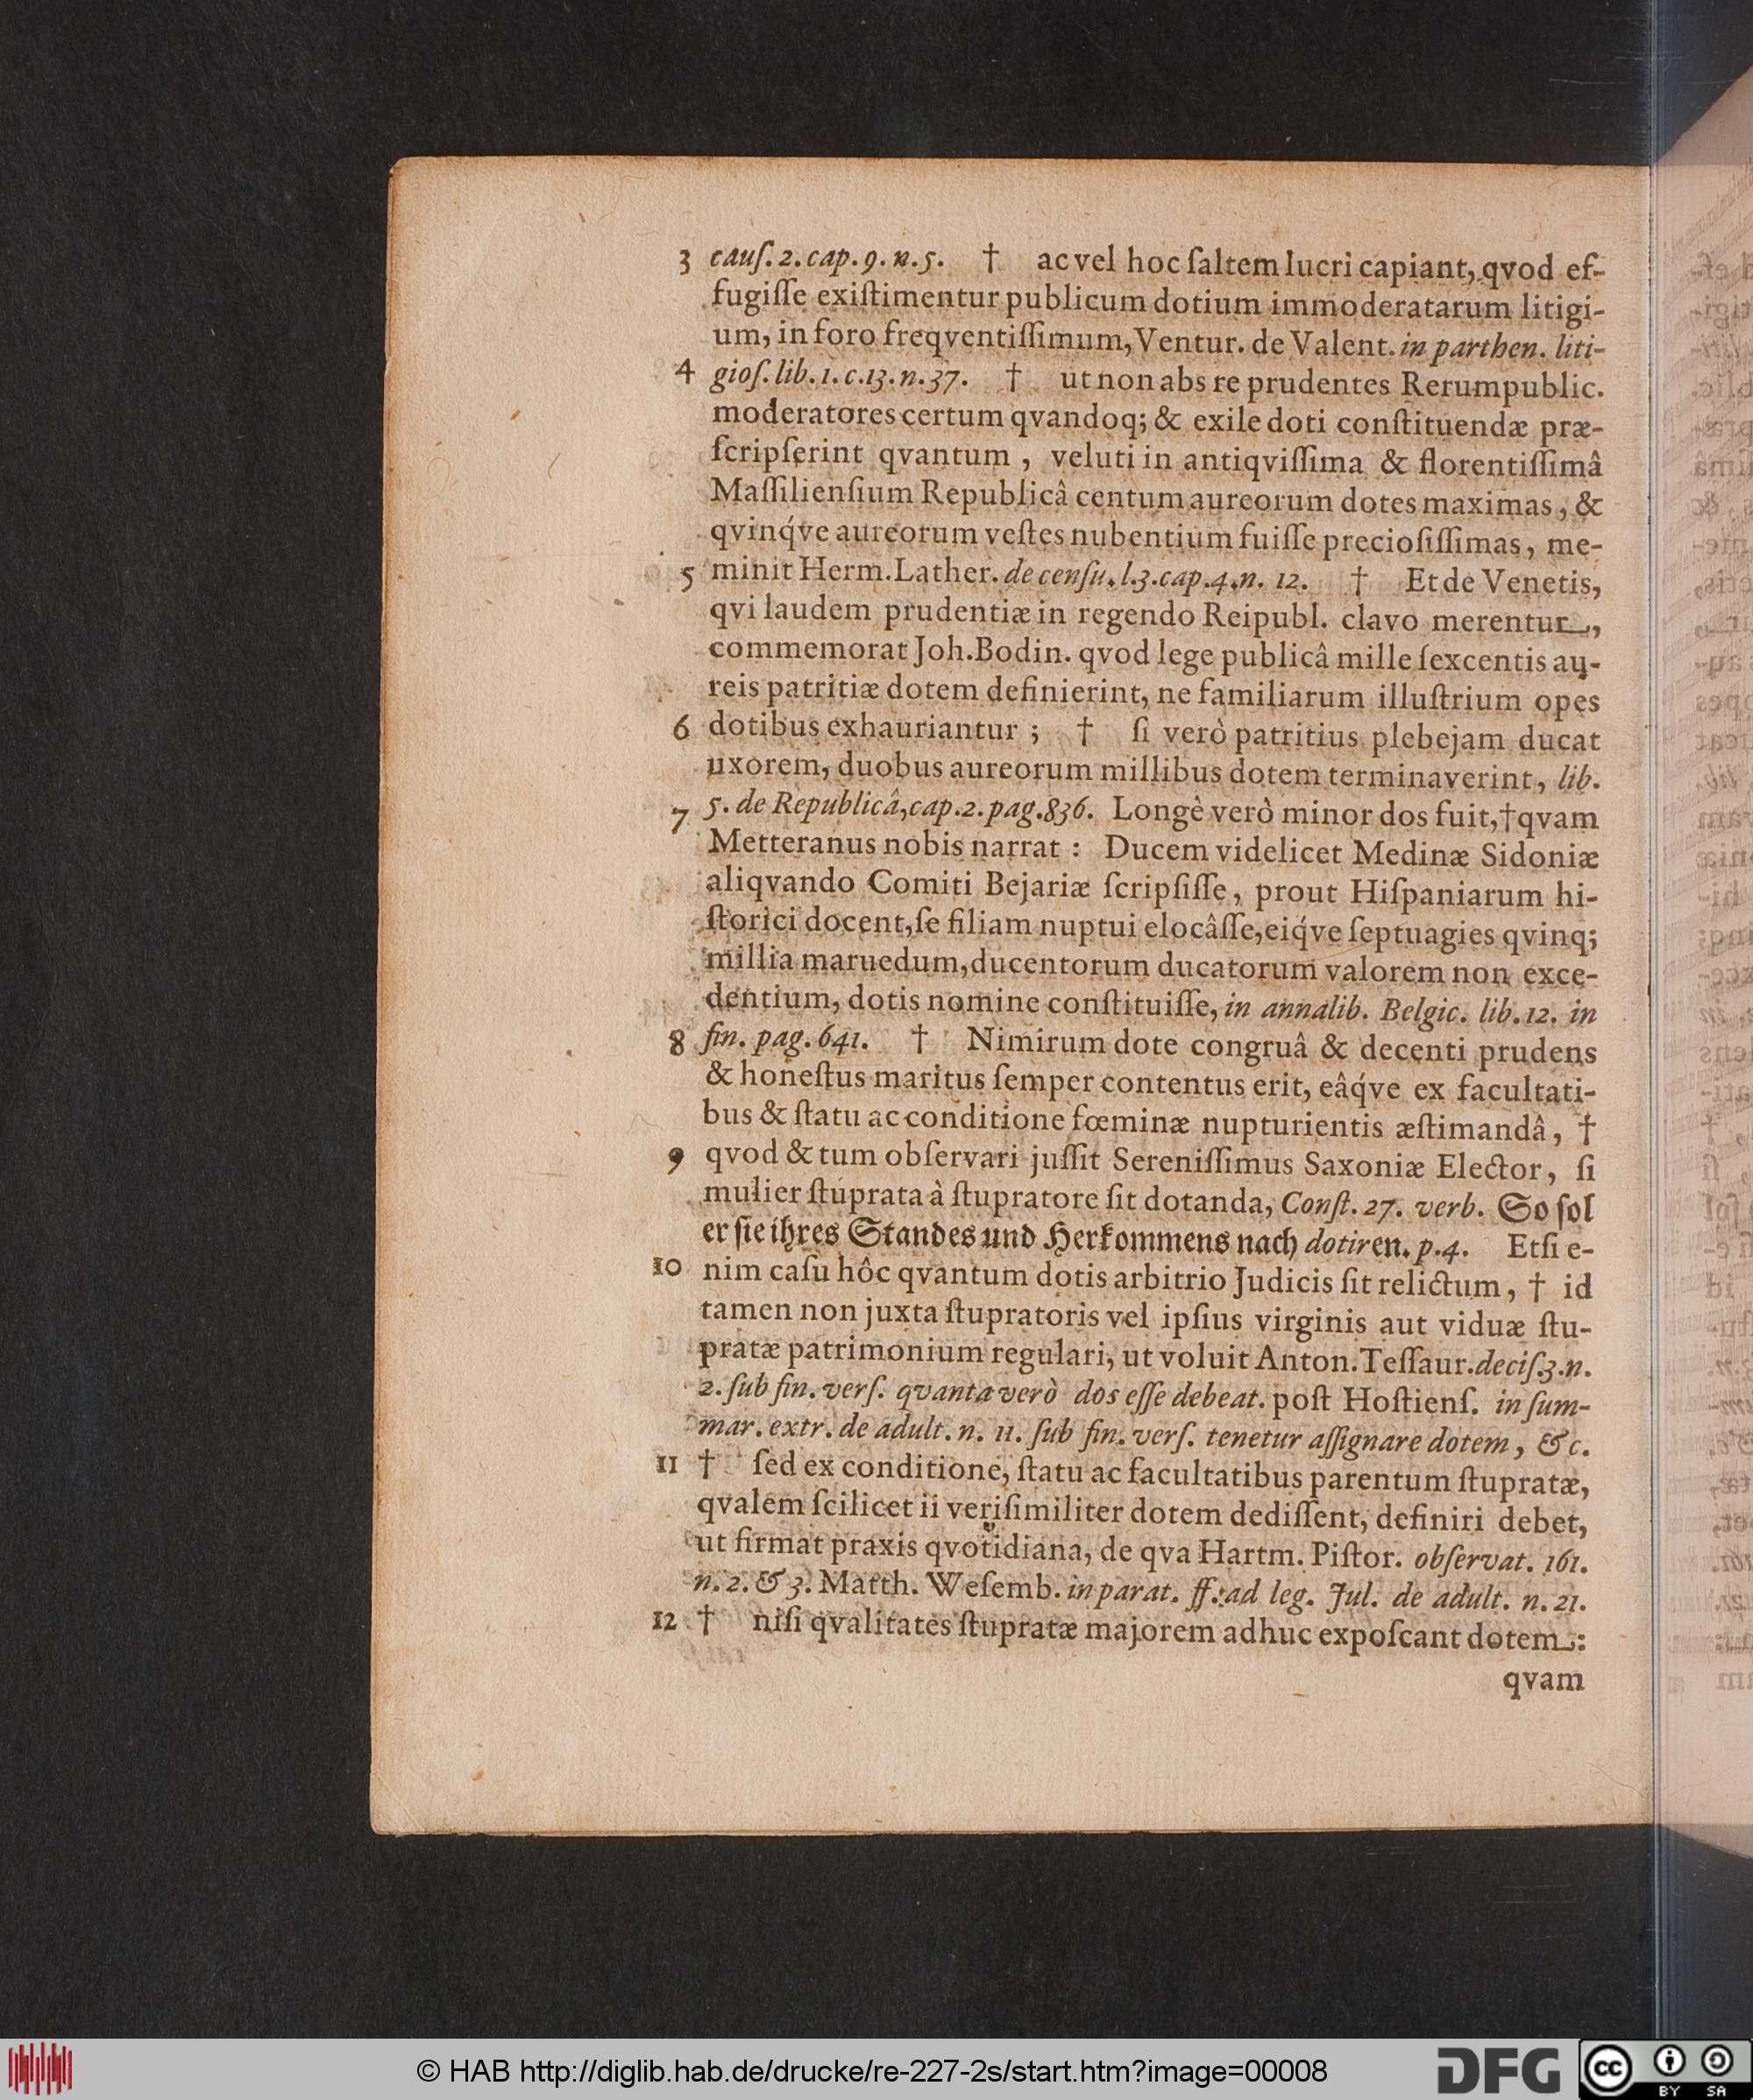 3 cauſ. 2. cap. 9. n. 5. † ac vel hoc ſaltem lucri capiant, qvod ef-
fugiſſe exiſtimentur publicum dotium immoderatarum litigi-
um, in foro freqventiſſimum, Ventur. de Valent. in parthen. liti-
4 gioſ. lib. 1. c. 13. n. 37. † ut non abs re prudentes Rerumpublic.
moderatores certum qvandoq; & exile doti conſtituendæ præ-
ſcripſerint qvantum , veluti in antiqviſſima & florentiſſimâ
Maſſilienſium Republicâ centum aureorum dotes maximas , &
qvinq́ve aureorum veſtes nubentium fuiſſe precioſiſſimas, me-
5 minit Herm. Lather. de cenſu. l. 3. cap. 4. n. 12. † Et de Venetis,
qvi laudem prudentiæ in regendo Reipubl. clavo merentur,
commemorat Joh. Bodin. qvod lege publicâ mille ſexcentis au-
reis patritiæ dotem definierint, ne familiarum illuſtrium opes
6 dotibus exhauriantur ; † ſi verò patritius plebejam ducat
uxorem, duobus aureorum millibus dotem terminaverint, lib.
7 5. de Republicâ, cap. 2. pag. 836. Longè verò minor dos fuit, † qvam
Metteranus nobis narrat : Ducem videlicet Medinæ Sidoniæ
aliqvando Comiti Bejariæ ſcripſiſſe, prout Hiſpaniarum hi-
ſtorici docent, ſe filiam nuptui elocâſſe, eiq́ve ſeptuagies qvinq;
millia maruedum, ducentorum ducatorum valorem non exce-
dentium, dotis nomine conſtituiſſe, in annalib. Belgic. lib. 12. in
8 fin. pag. 641. † Nimirum dote congruâ & decenti prudens
& honeſtus maritus ſemper contentus erit, eâq́ve ex facultati-
bus & ſtatu ac conditione fœminæ nupturientis æſtimandâ, †
9 qvod & tum obſervari juſſit Sereniſſimus Saxoniæ Elector, ſi
mulier ſtuprata à ſtupratore ſit dotanda, Conſt. 27. verb. So ſol
er ſie ihres Standes und Herkommens nach dotiren. p. 4. Etſi e-
10 nim caſu hôc qvantum dotis arbitrio Judicis ſit relictum, † id
tamen non juxta ſtupratoris vel ipſius virginis aut viduæ ſtu-
pratæ patrimonium regulari, ut voluit Anton. Teſſaur. deciſ. 3. n.
2. ſub fin. verſ. qvanta verò dos eſſe debeat. poſt Hoſtienſ. in ſum-
mar. extr. de adult. n. 11. ſub fin. verſ. tenetur aſſignare dotem, &c.
11 † ſed ex conditione, ſtatu ac facultatibus parentum ſtupratæ,
qvalem ſcilicet ii veriſimiliter dotem dediſſent, definiri debet,
ut firmat praxis qvotidiana, de qva Hartm. Piſtor. obſervat. 161.
n. 2. & 3. Matth. Weſemb. in parat. ff. ad leg. Jul. de adult. n. 21.
12 † niſi qvalitates ſtupratæ majorem adhuc expoſcant dotem:
qvam
© HAB http://diglib.hab.de/drucke/re-227-2s/start.htm?image=00008
DFG
cc BY SA